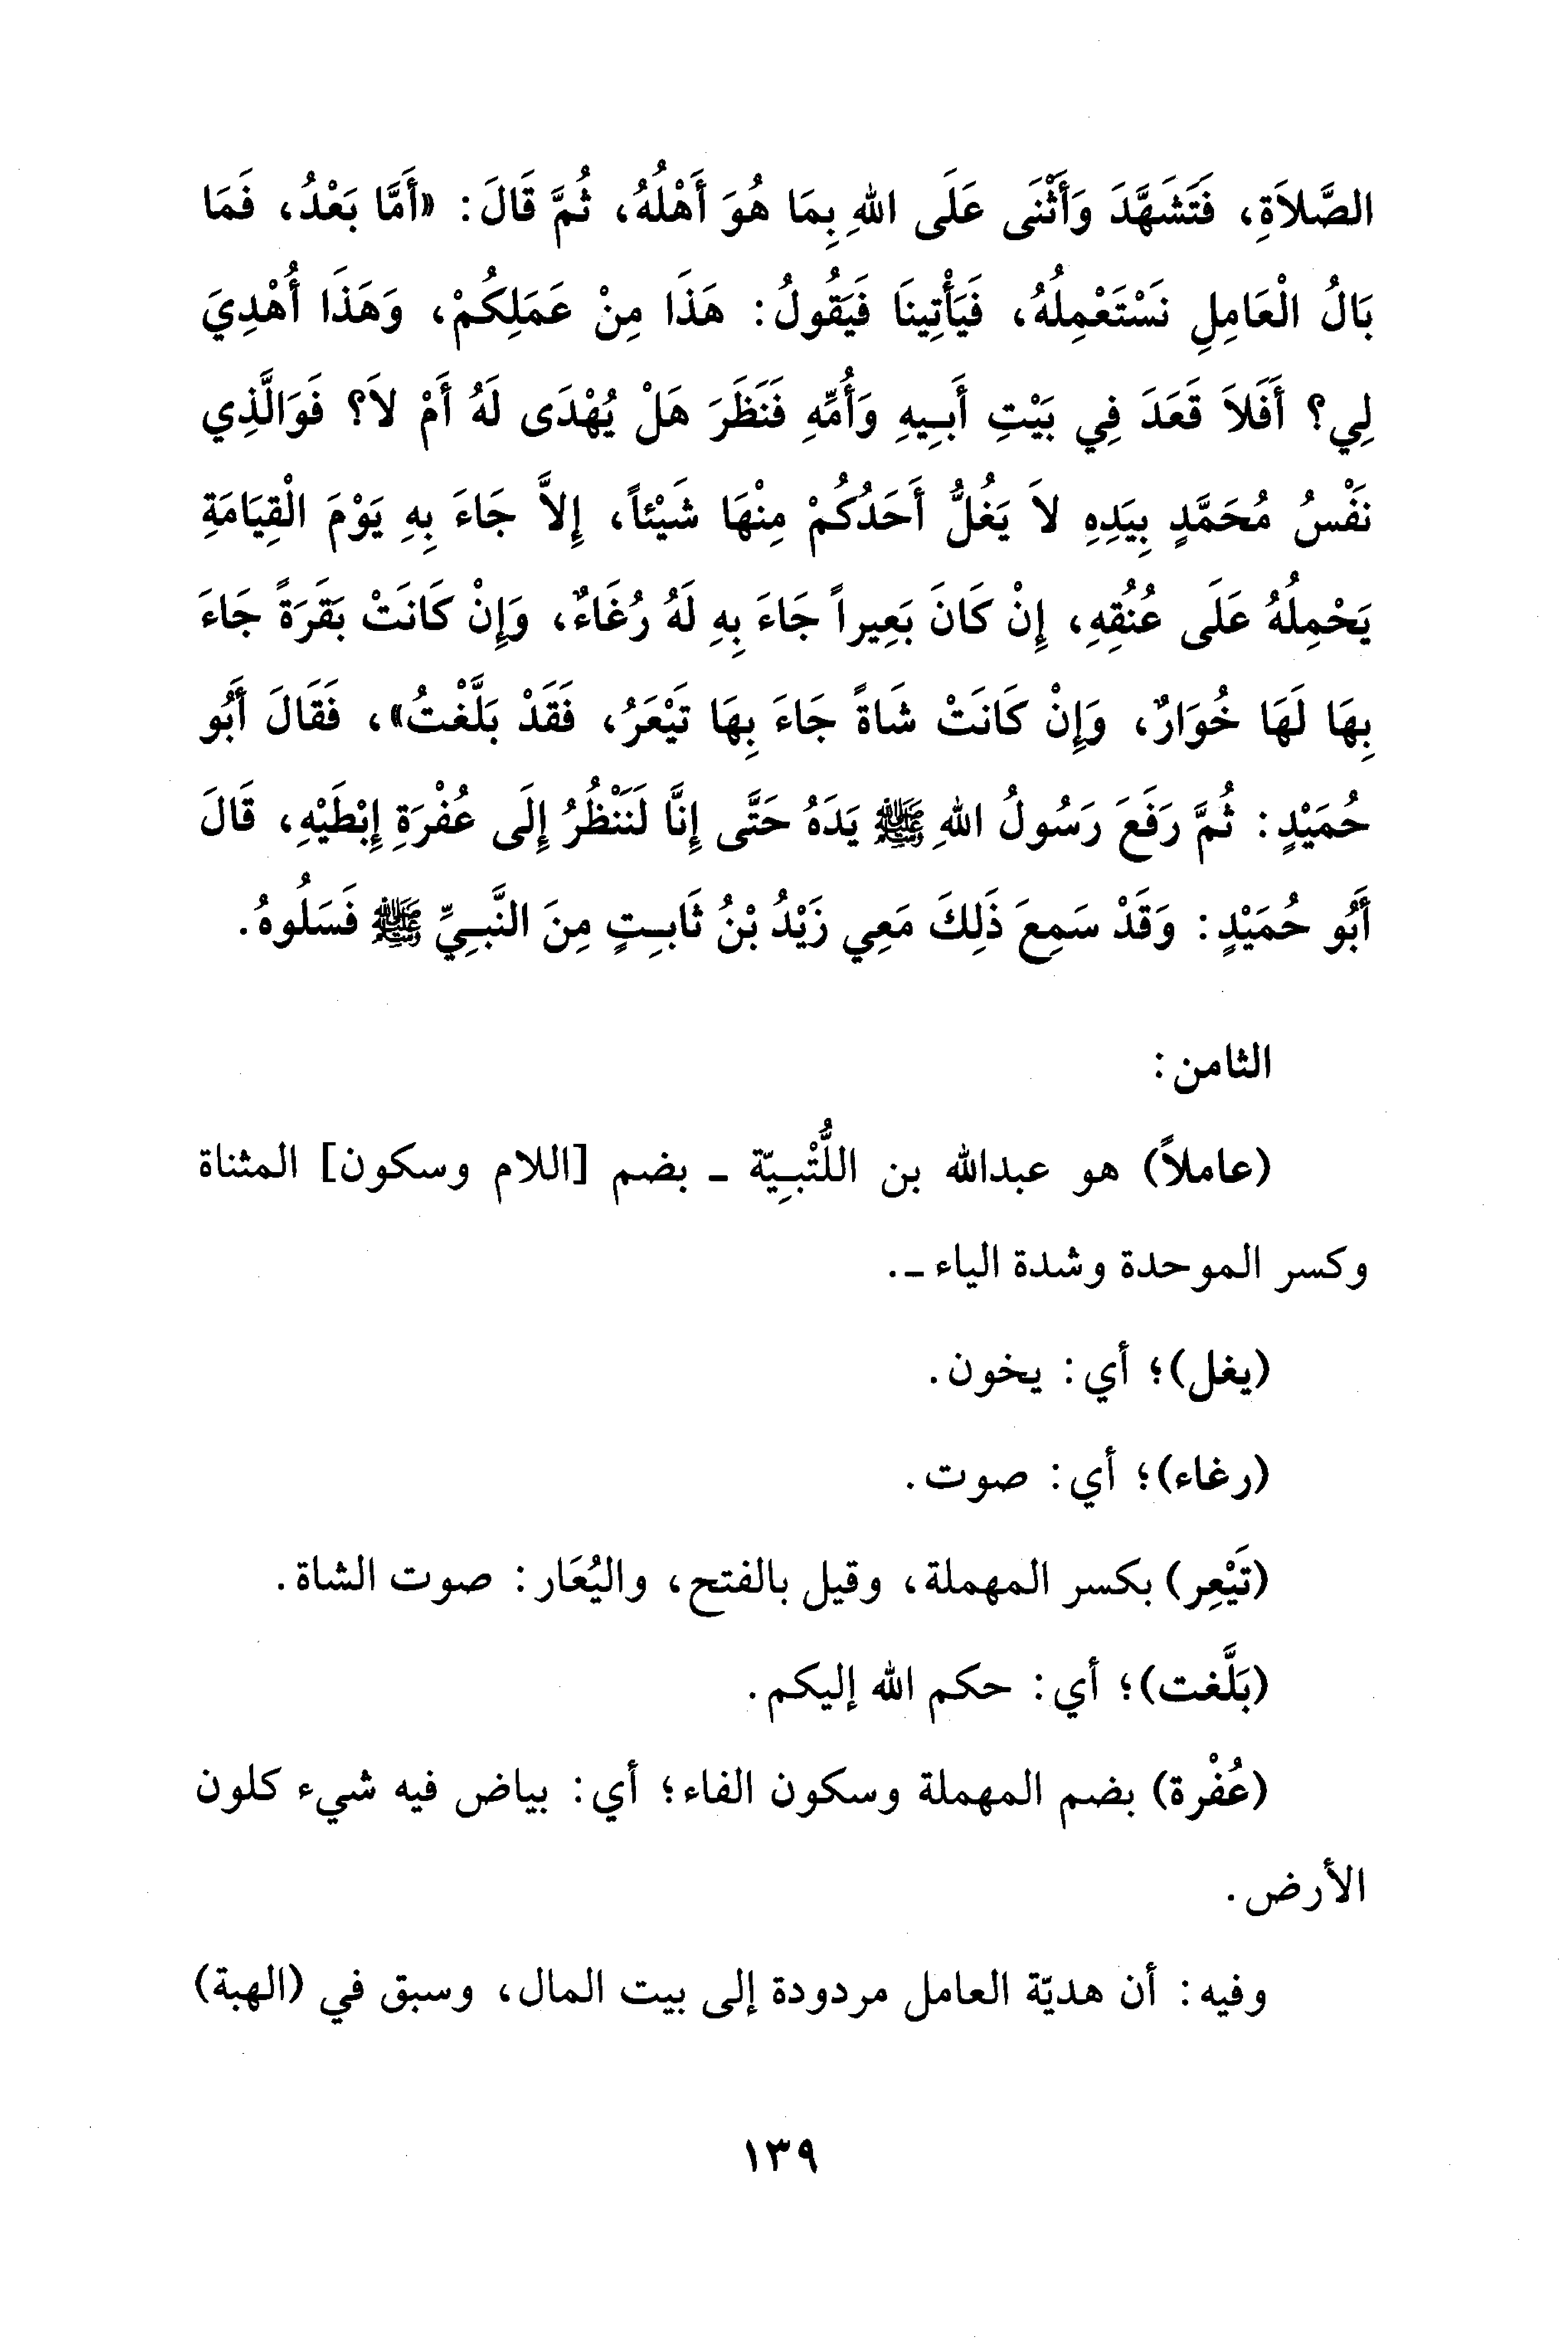 الصَّلاَةِ، فَتَشَهَّدَ وَأَثْنَى عَلَى اللهِ بِمَا هُوَ أَهْلُهُ، ثُمَّ قَالَ: «أَمَّا بَعْدُ، فَمَا
بَالُ الْعَامِلِ نَسْتَعْمِلُهُ، فَيَأْتِينَا فَيَقُولُ: هَذَا مِنْ عَمَلِكُمْ، وَهَذَا أُهْدِيَ
لِي؟ أَفَلاَ قَعَدَ فِي بَيْتِ أَبِيهِ وَأُمِّهِ فَنَظَرَ هَلْ يُهْدَى لَهُ أَمْ لاَ؟ فَوَالَّذِي
نَفْسُ مُحَمَّدٍ بِيَدِهِ لاَ يَغُلُّ أَحَدُكُمْ مِنْهَا شَيْئاً، إِلاَّ جَاءَ بِهِ يَوْمَ الْقِيَامَةِ
يَحْمِلُهُ عَلَى عُنُقِهِ، إِنْ كَانَ بَعِيراً جَاءَ بِهِ لَهُ رُغَاءٌ، وَإِنْ كَانَتْ بَقَرَةً جَاءَ
بِهَا لَهَا خُوَارٌ، وَإِنْ كَانَتْ شَاةً جَاءَ بِهَا تَيْعَرُ، فَقَدْ بَلَّغْتُ»، فَقَالَ أَبُو
حُمَيْدٍ: ثُمَّ رَفَعَ رَسُولُ اللهِ ﷺ يَدَهُ حَتَّى إِنَّا لَنَنْظُرُ إِلَى عُفْرَةِ إِبْطَيْهِ، قَالَ
أَبُو حُمَيْدٍ: وَقَدْ سَمِعَ ذَلِكَ مَعِي زَيْدُ بْنُ ثَابِتٍ مِنَ النَّبِيِّ ﷺ فَسَلُوهُ.
الثامن:
(عاملاً) هو عبدالله بن اللُّتْبِيّة - بضم [اللام وسكون] المثناة
وكسر الموحدة وشدة الياء -.
(يغل)؛ أي: يخون.
(رغاء)؛ أي: صوت.
(تَيْعِر) بكسر المهملة، وقيل بالفتح، واليُعَار: صوت الشاة.
(بَلَّغت)؛ أي: حكم الله إليكم.
(عُفْرة) بضم المهملة وسكون الفاء؛ أي: بياض فيه شيء كلون
الأرض.
وفيه: أن هديّة العامل مردودة إلى بيت المال، وسبق في (الهبة)
١٣٩